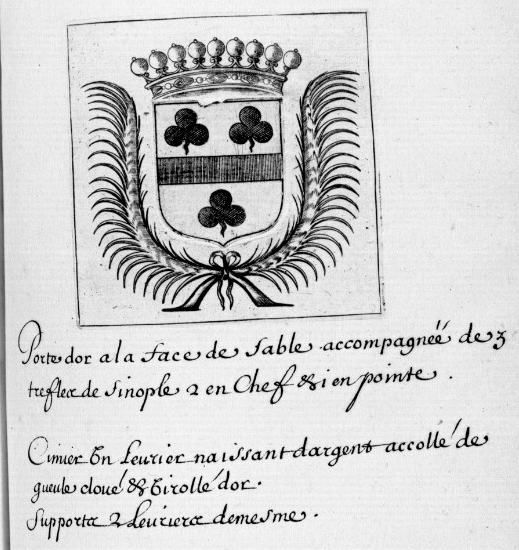 Porte dor a la face de sable accompagnéé de 3
trefles de sinople 2 en Chef & i en pointe .
Cimier Un Leurier naissant dargent accollé de
gueule cloué & Virollé dor.
Supports 2 Leuriers demesme .